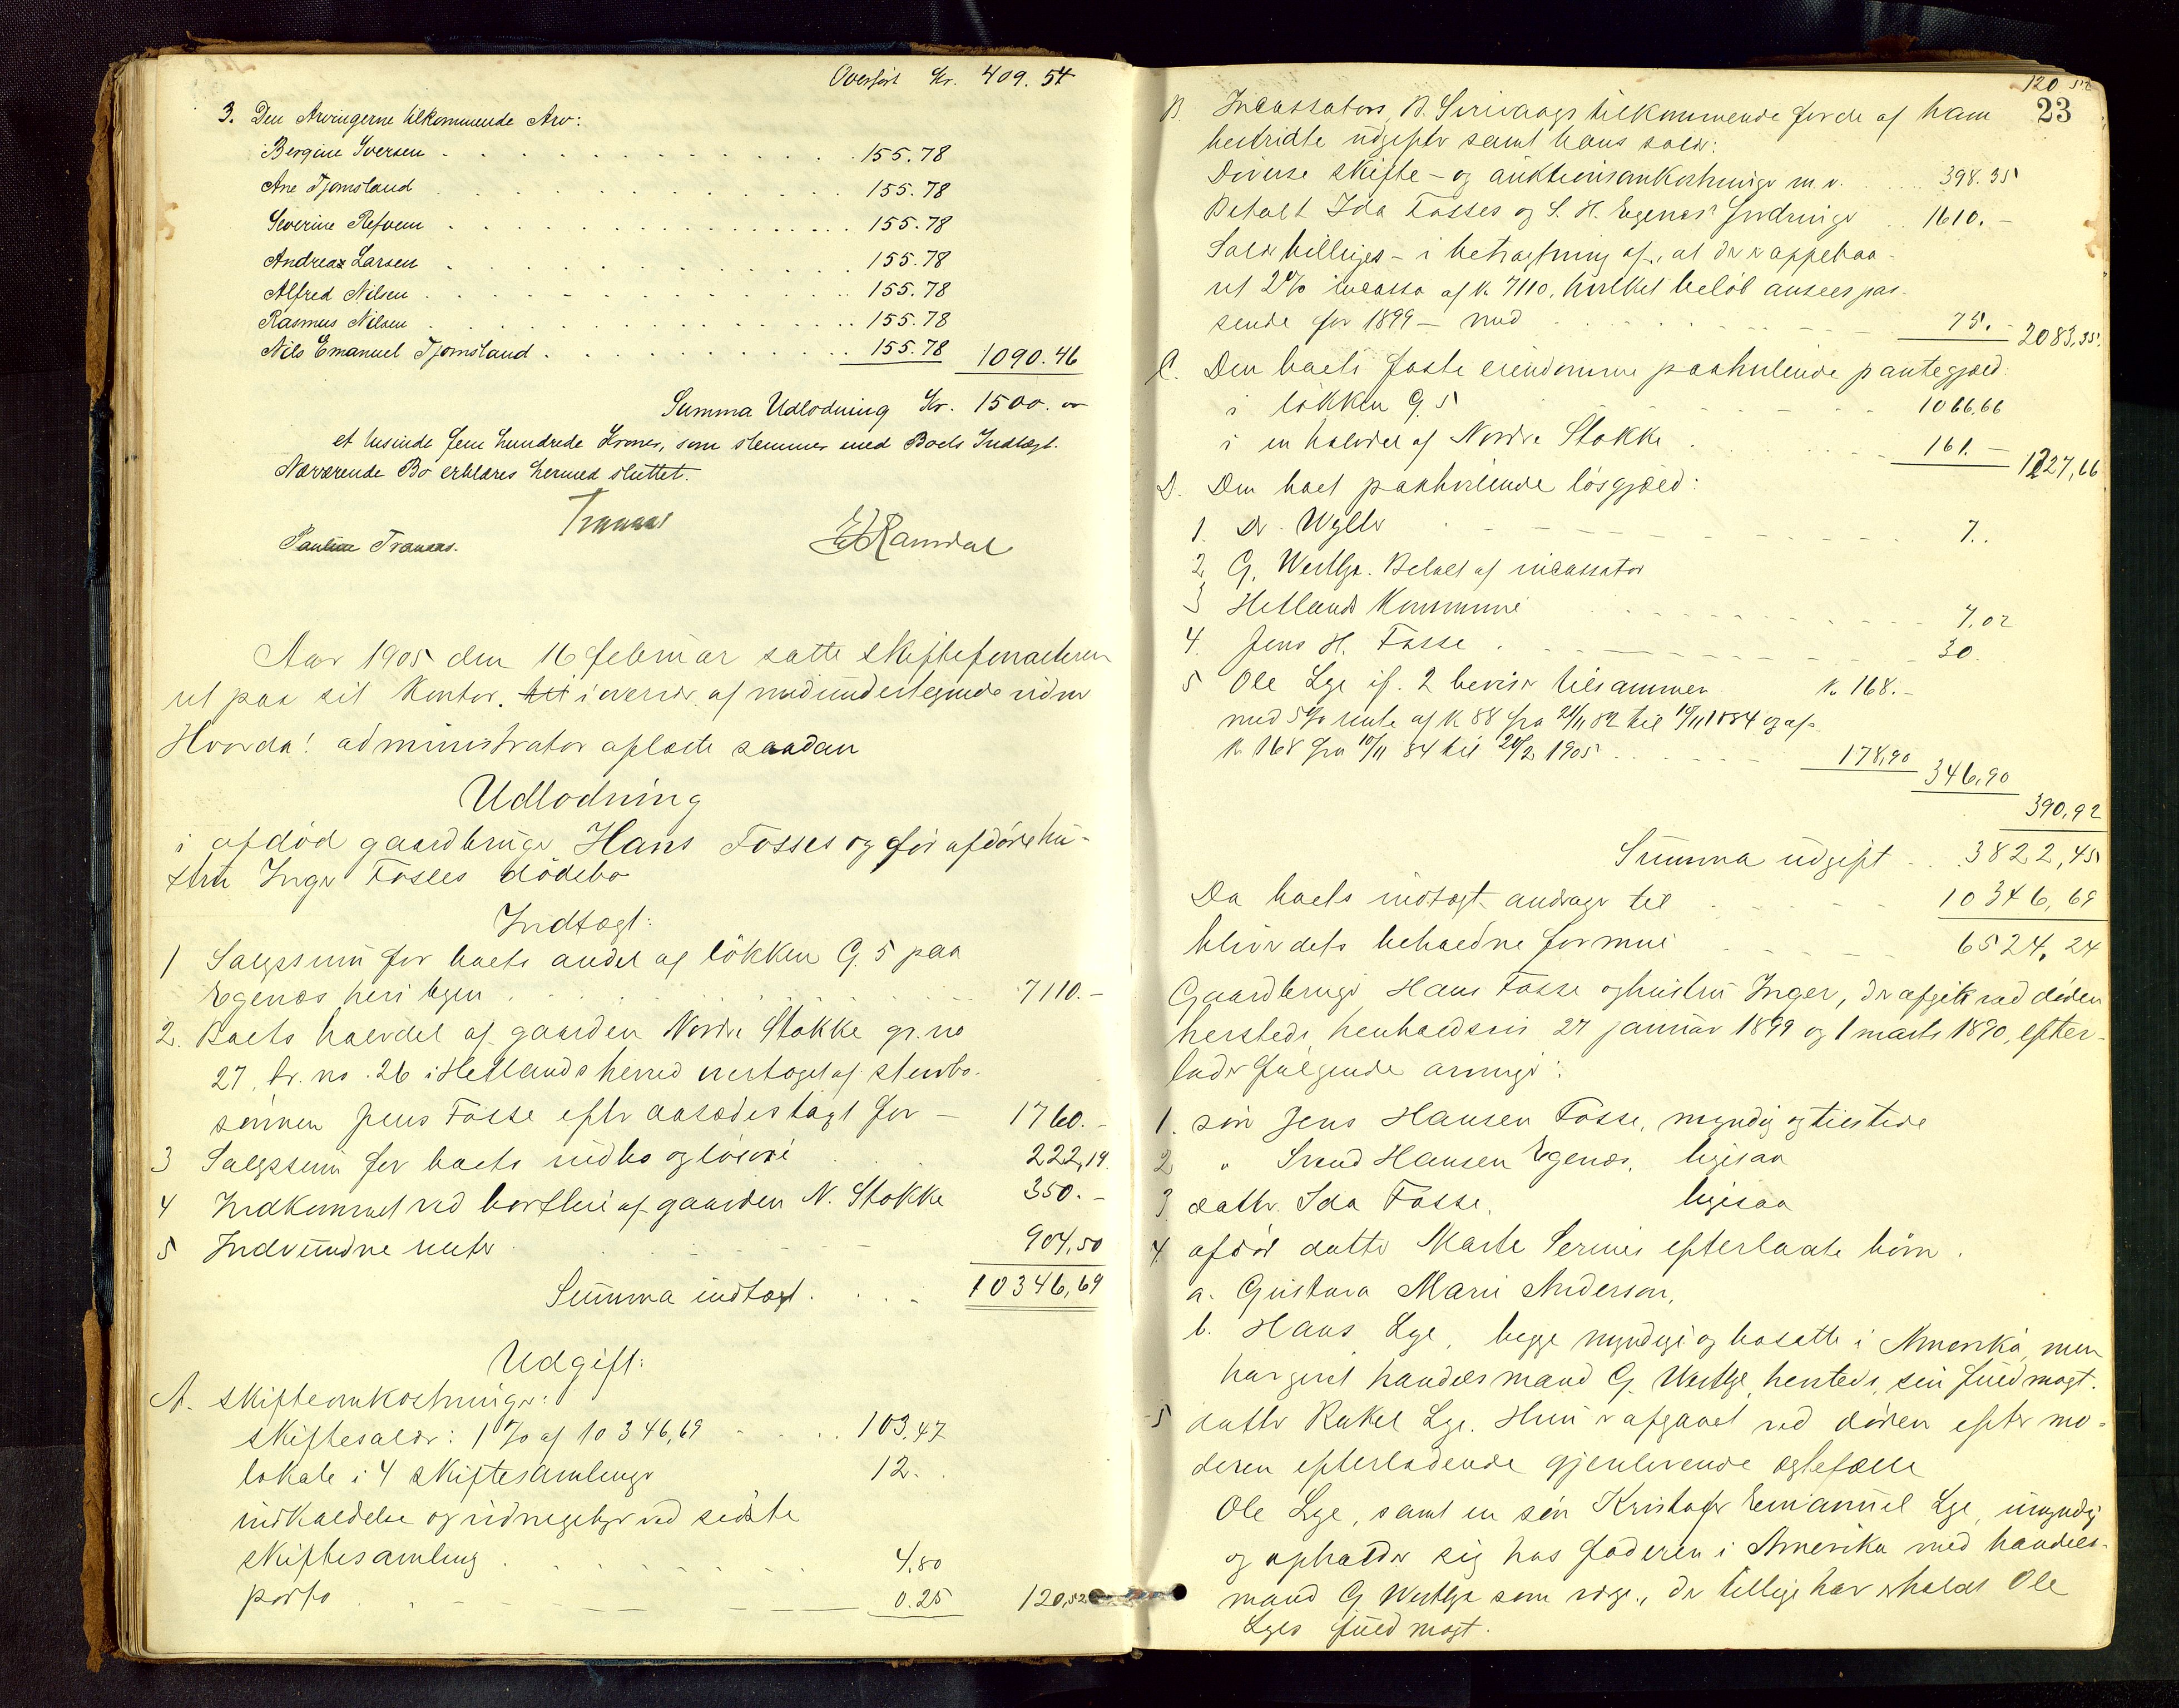 Overført Kr. 409.54
3. Den Arvingerne tilkommende Arv:
Bergine Iversen . . . 155.78
Ane Tjomsland . . . 155.78
Severine Refvem . . . 155.78
Andreas Larsen . . . 155.78
Alfred Nilsen . . . 155.78
Rasmus Nilsen . . . 155.78
Nils Emanuel Tjomsland . . . 155.78 1090.46
Summa Udlodning Kr. 1500.
et tusinde fem hundrede Kroner, som stemmer med Boets Indtægt.
Nærværende Bo erklæres hermed sluttet.
Tranaas
Pauline Tranaas.
Aar 1905 den 16 februar satte skifteforvalteren
ret paa sit Kontor. til i overvær af medundertegnede vidner
Hvorda! administrator oplæste saadan
Udlodning
i afdød gaardbruger Hans Fosses og før afdøde hu-
stru Inger Fosses dødsbo
Indtægt:
1 Salgssum for boets andel af løkken G. 5 paa
Egenæs heri byen . . . 7110.-
2. Boets halvdel af gaarden Nordre Stokke gr. no
27, br. no. 26 i Hetlands herred overtaget af stervbo-
sønnen Jens Fosse efter aasædestagt for - 1760.-
3 Salgssum for boets indbo og løsøre 222,19.
4 Indkommet ved bortleie af gaarden N. Stokke 350.-
5 Indvundne renter 904,50
Summa indtægt . . . 10346,69
Udgift:
A. skifteomkostninger:
skiftesalær: 1 % af 10346,69 . . . 103,47
lokale i 4 skiftesamlinger 12.
indkaldelse og vidnegebyr ved sidste
skiftesamling . . . 4,80
porto . . . 0.25 120,52
120 52
23
B. Incassators, B. Sirivaags tilkommende for de af ham
bestridte udgifter samt hans salær:
Diverse skifte- og auktionsomkostninger m.v. . . . 398.35
Betalt Ida Fosses og S. H. Egenæs' fordringer . . 1610.-
Salær billiges - i betragtning af, at der er oppebaa-
ret 2 % incasso af k. 7110, hvilket beløb ansees pas-
sende for 1899 - med . . . 75.- 2083,35.
C. Den boets faste eiendomme paahvilende pantegjæld:
i løkken G. 5 1066.66
i en halvdel af Nordre Stokke . . . 161.- 1227,66
D. Den boet paahvilende løsgjæld:
1. Dr. Wyller . . . 7..
2 G. Westbye. Betalt af incassator
3 Hetlands Kommune . . . 7,02
4. Jens H. Fosse . . . 30.
5 Ole Lye if. 2 beviser tilsammen k. 168.-
med 5 % rente af k 88 fra 21/11 82 til 10/11 1884 og af
k. 168 fra 10/11 84 til 20/2 1905 . . . 178,90 346,90
390,92
Summa udgift . . 3822,45
Da boets indtægt andrager til . . . 10346,69
bliver dets beholdne formue . . . 6524,24
Gaardbruger Hans Fosse og hustru Inger, der afgik ved døden
hersteds henholdsvis 27 januar 1899 og 1 marts 1890, efter-
lader følgende arvinger:
1. søn Jens Hansen Fosse, myndig og tilstede
2 " Svend Hansen Egenæs, ligesaa
3. datter Ida Fosse, ligesaa
4. afdød datter Marte Serines efterladte børn.
a. Gustava Marie Anderson,
b. Hans Lye, begge myndige og bosatte i Amerika, men
har givet handelsmand G. Westbye, hersteds, sin fuldmagt.
5 datter Rakel Lye. Hun er afgaaet ved døden efter mo-
deren efterladende gjenlevende ægtefælle
Ole Lye, samt en søn Kristofer Emanuel Lye, umyndig
og opholder sig hos faderen i Amerika med handels-
mand G Westbye som værge, der tillige har erholdt Ole
Lyes fuldmagt.